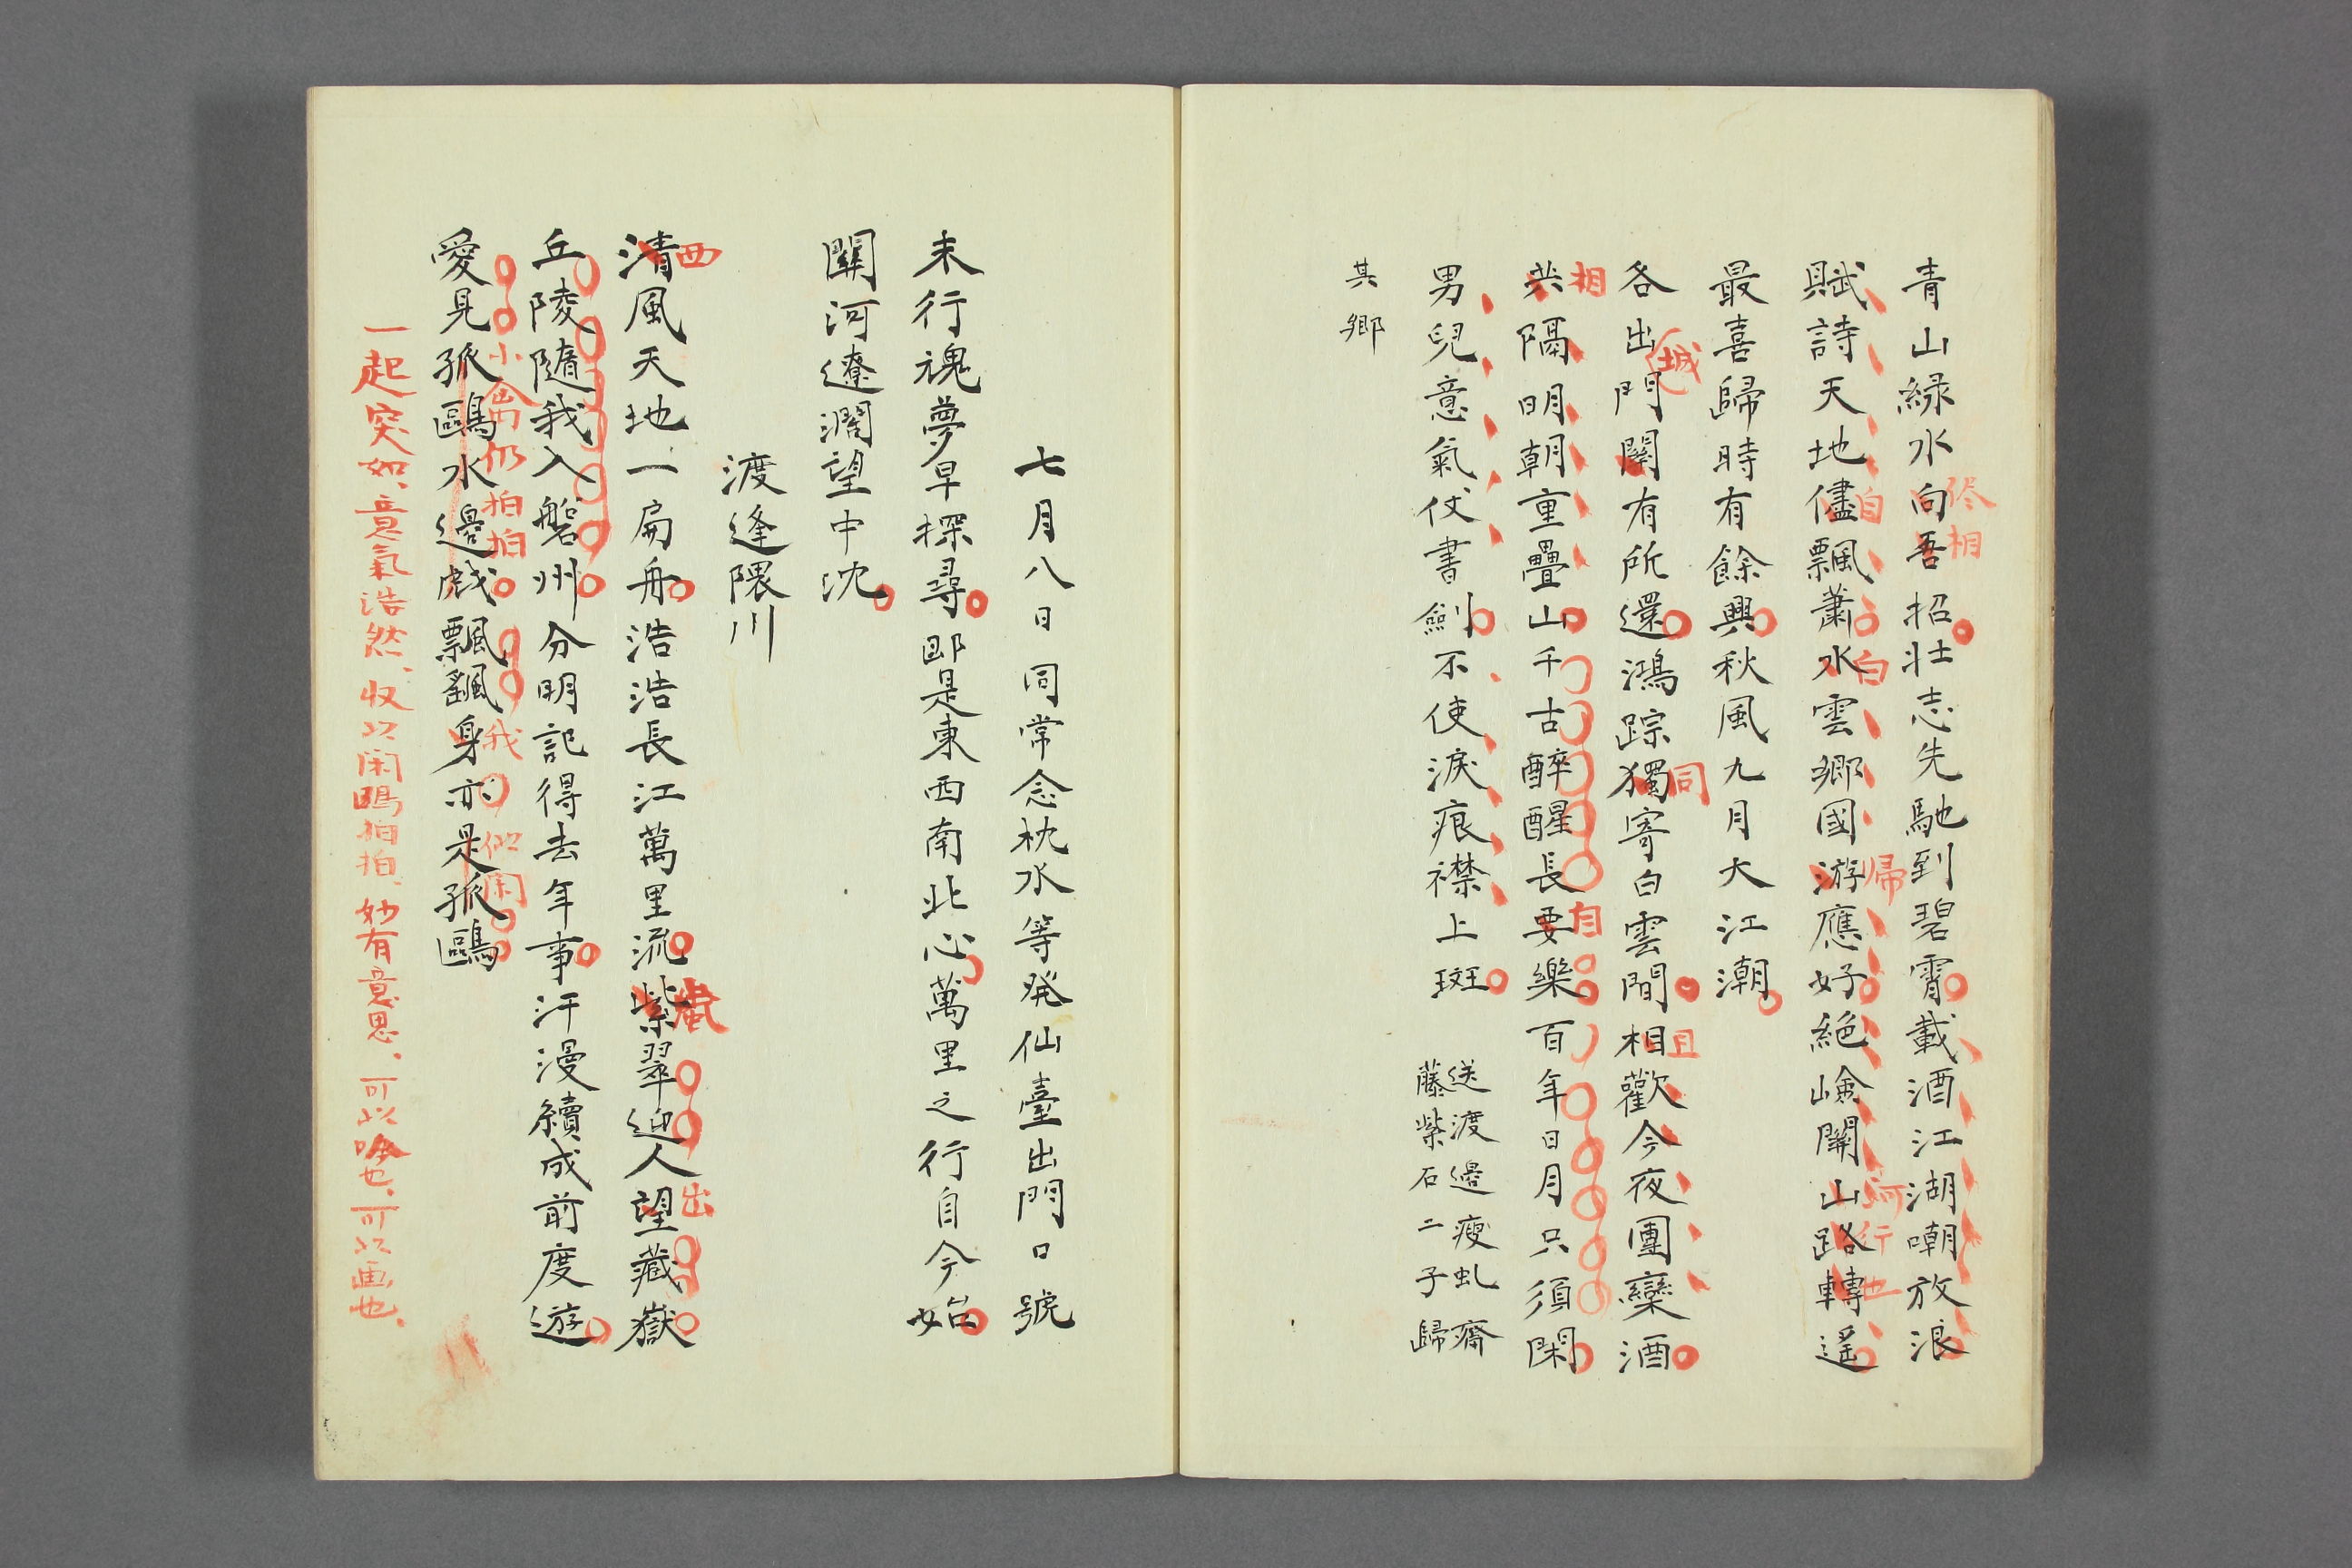 青山緑水向吾招壮志先馳到碧霄載酒江湖嘲放浪
侭相
賦詩天地儘飄蕭水雲郷國游應好絶嶮關山路轉遙
自
白
帰
河行
最喜歸時有餘興秋風九月大江潮
各出門關有所還鴻踪獨寄白雲間相歡今夜團欒酒
城
同
且
共隔明朝重疊山千古醉醒長要樂百年日月只須閑
相
自
男兒意氣仗書劍不使淚痕襟上斑
送渡邉瘦虬齋
藤紫石二子歸
其郷
七月八日同常念枕水等発仙臺出門口號
未行魂夢早探尋即是東西南北心萬里之行自今始
關河遼濶望中沈
渡逢隈川
清風天地一扁舟浩浩長江萬里流紫翠迎人望藏嶽
西
嵐
出
丘陵隨我入磐州分明記得去年事汗漫續成前度遊
愛見孤鷗水邊戯飄颻身亦是孤鷗
小禽仍拍拍
我
似閑
一起突如、意氣浩然、収以閑鴎拍拍、妙有意思、可以咏也、可以画也、